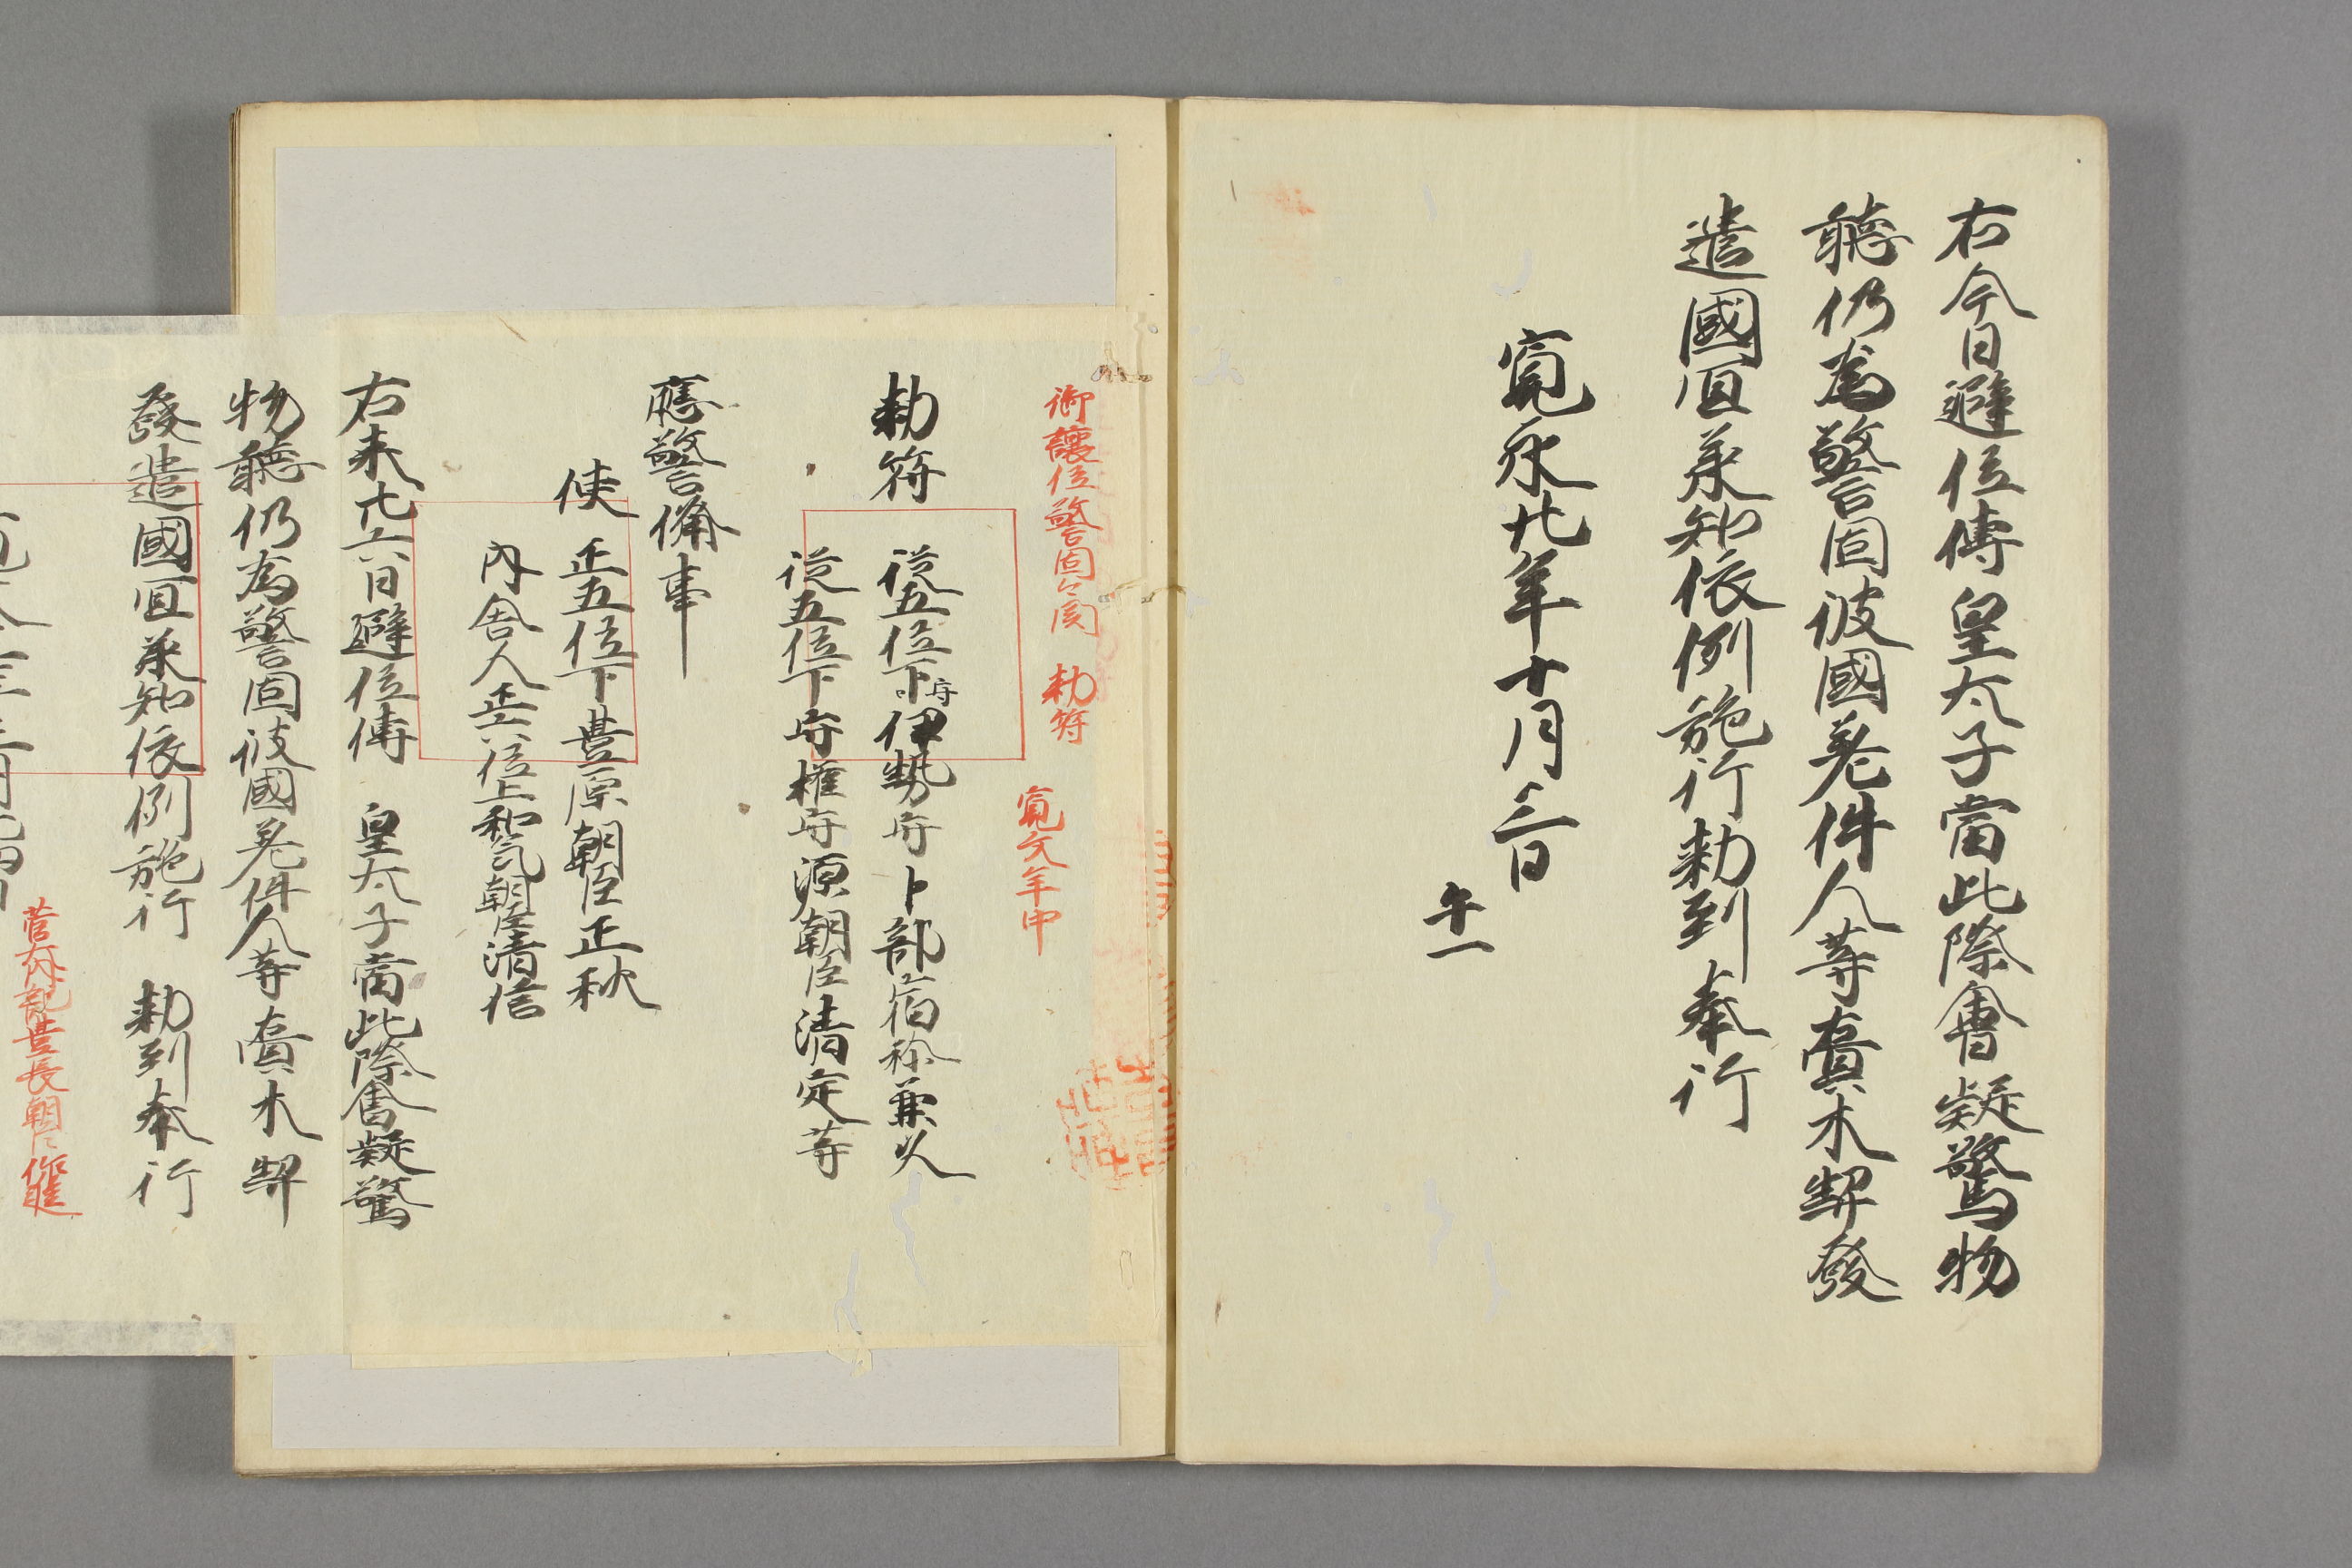 右今日避位傳皇太子當此際會疑驚物
聴仍為警固彼國差件人等賫木契發
遣國冝承知依例施行勅到奉行
寛永廿年十月三日
午一
御讓位警固々関　勅符
寛文年中
勅符　従五位下守伊勢守卜部宿祢兼久
従五位下守権守源朝臣清定等
應警備事
使　正五位下豊原朝臣正秋
内舎人正六位上和氣朝臣清信
右来廿六日避位傳　皇太子當此際會疑驚
物聴仍為警固彼國差件人等賫木契
發遣國冝承知依例施行　勅到奉行
菅大内記豊長朝臣